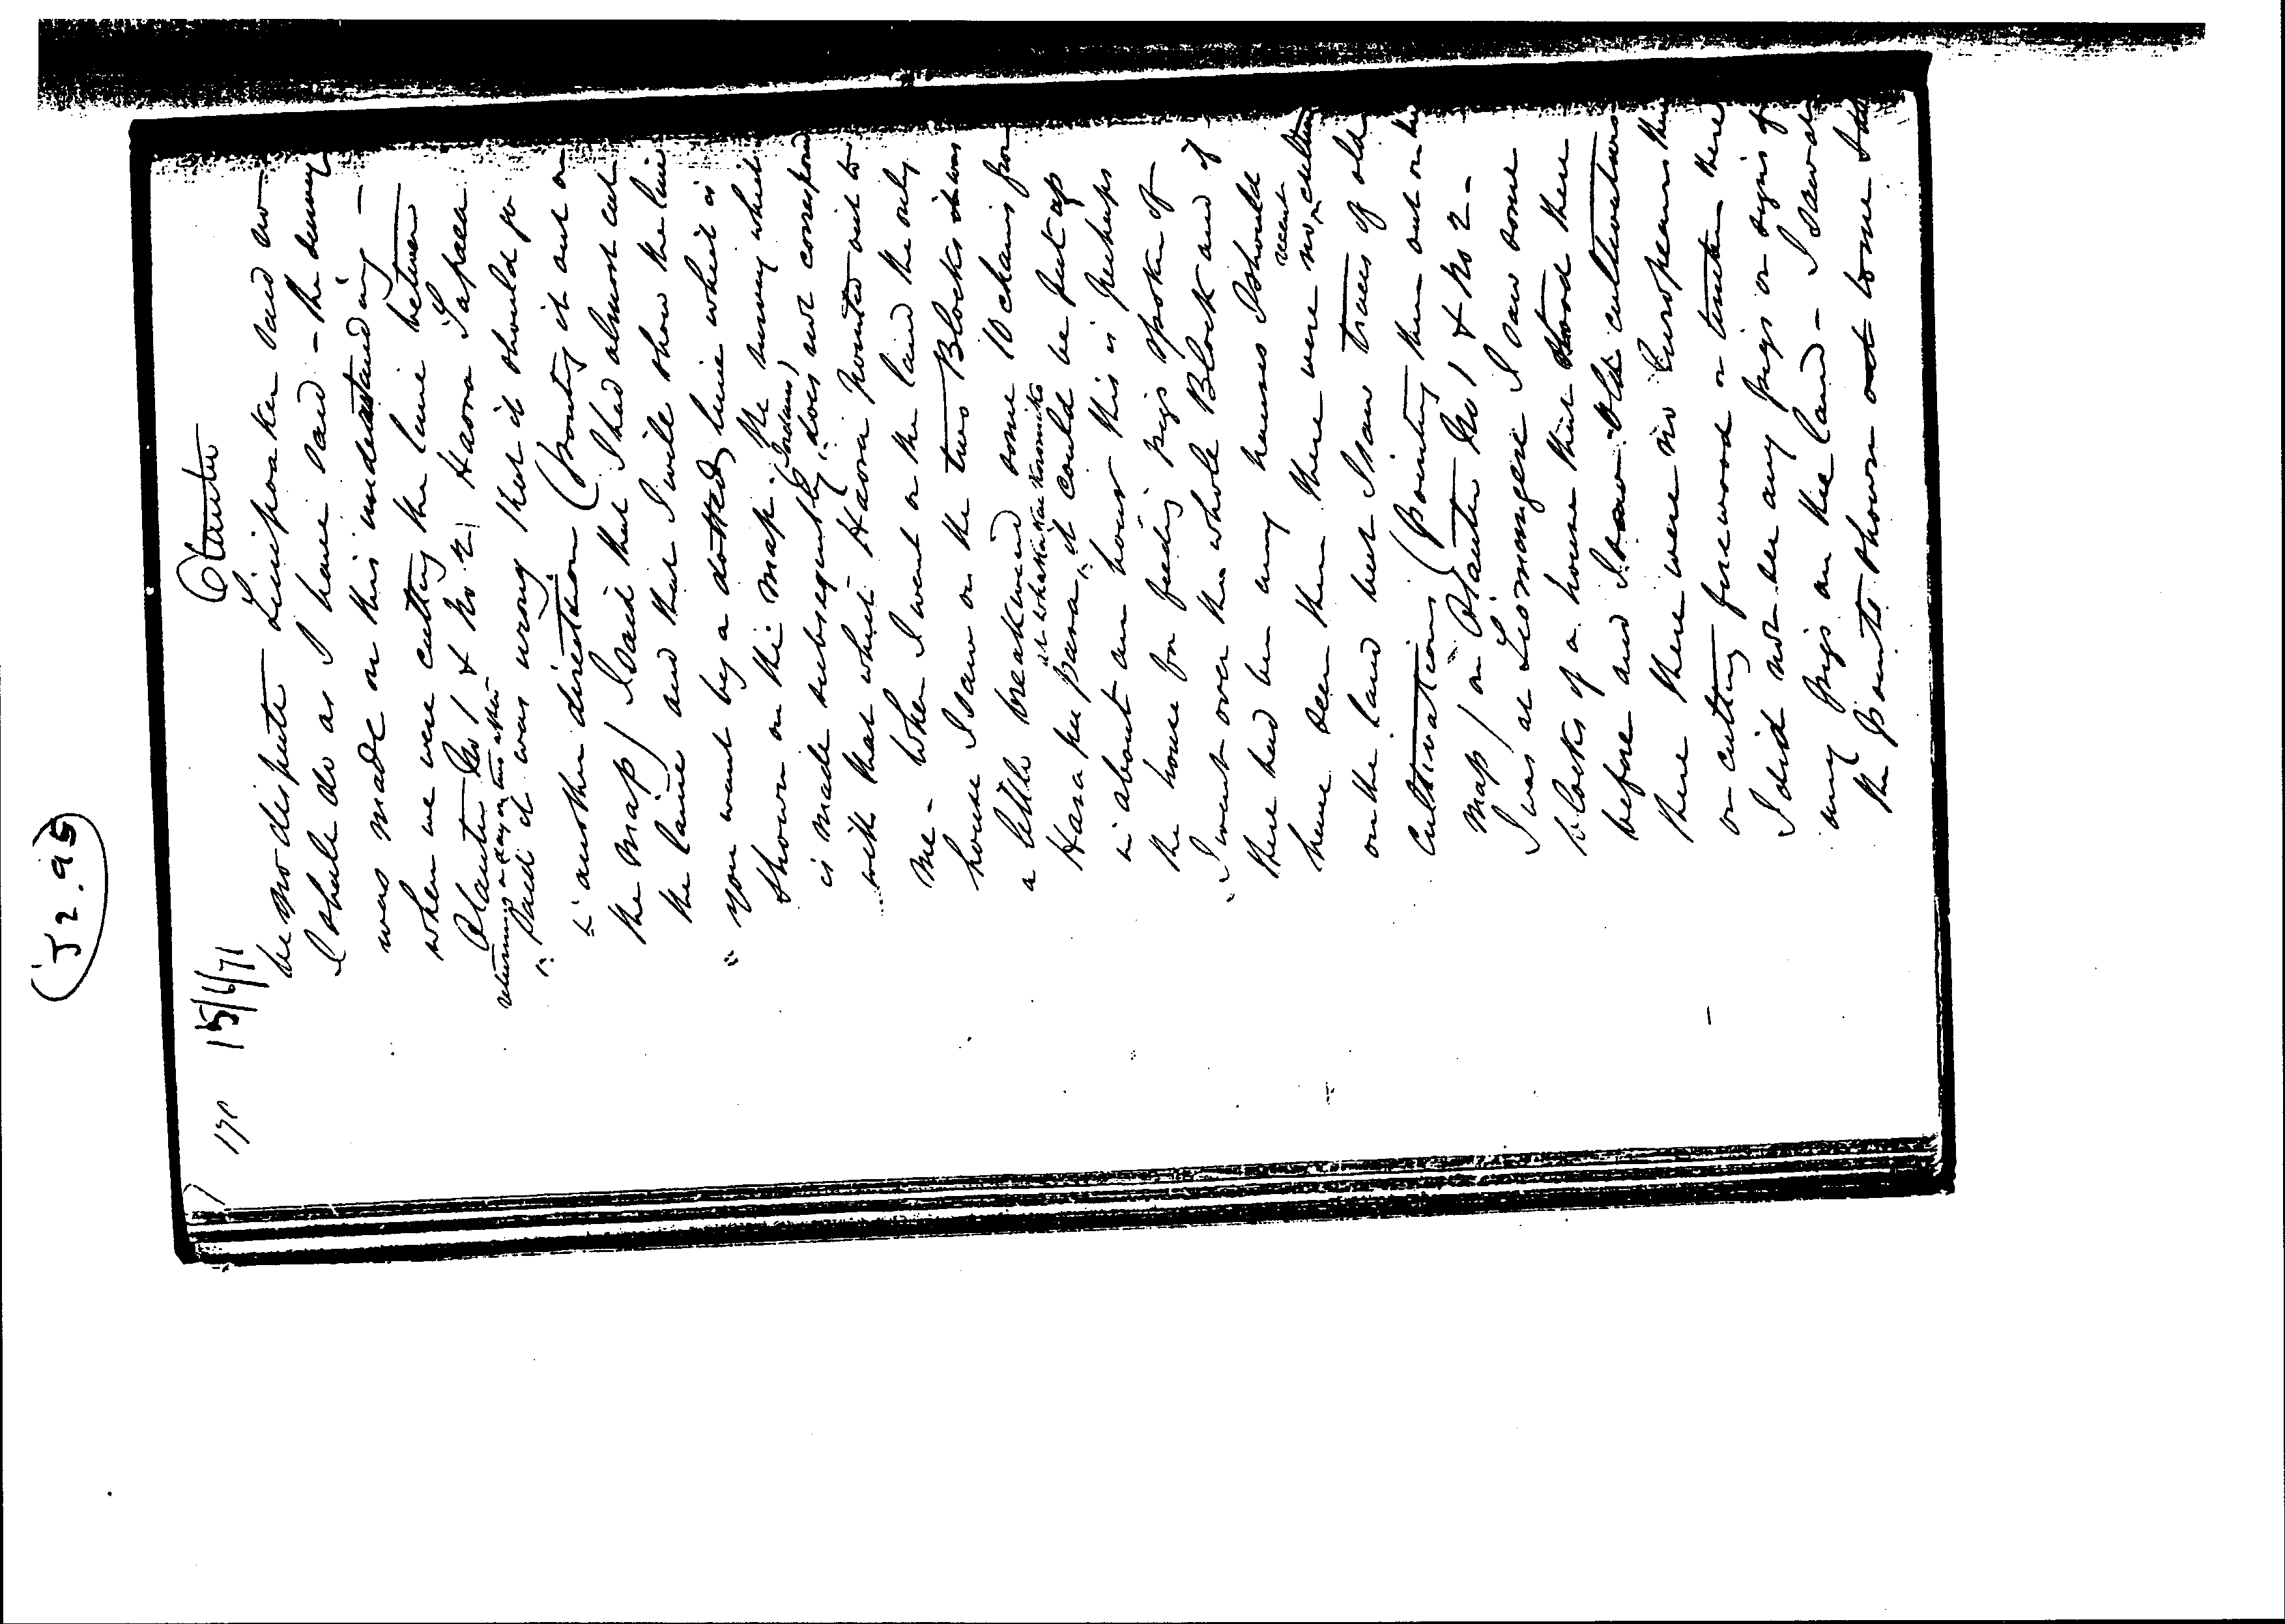 (J2.95)
171 15/6/71 Otautu
be no dispute Sinipoaka said no
I shall do as I have said - the survey
was made on this understanding -
when we were cutting the line between
Otautu No 1 & No 2 Haora Tapaea
returning a day or two after
said it was wrong that it should go
in another direction (Pointing it out on
the map) I said that I had almost cut
the line and that I will show the line
you want by a dotted line which is
shown on the map. The survey which
is made subsequently (Jordans) does not correspond
with that which Haora pointed out to
me - When I went on the land the only
house I saw on the two Blocks it was
a little breakwind some 10 chains from
Hara pu Parra, it could be put up
in about an hour this is perhaps
the house for feeding pigs spoken of
I went over the whole Block and if
there had been any houses I should
have seen them there were no recent cultivations
on the land but I saw traces of old
cultivations (Pointing them out on the
map) on Otautu No 1 & No 2 -
I was at I saw some
blocks of a house that stood there
before and I saw old cultivations
there there were no Europeans there
or cutting firewood or timber there
I did not see any pigs or signs of
any pigs on the land - I saw all
the Points shown out to me